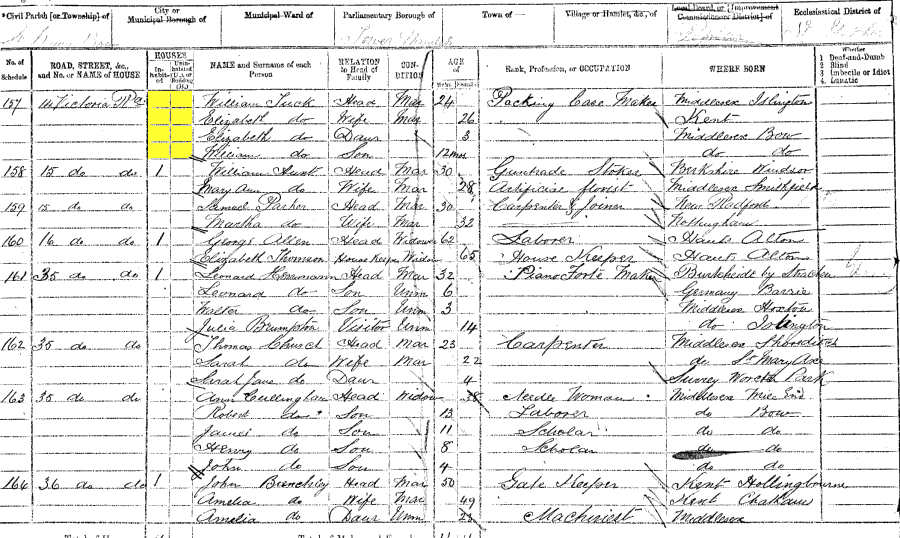 Civil Parish [or Township] of
City or Municipal Borough of
Municipal Ward of
Parliamentary Borough of
Town of
Village or Hamlet, &c., of
Local Board, or [Improvement Commissioners District] of
Ecclesiastical District of
Tower
No. of Schedule
ROAD, STREET, &c., and No. or NAME of HOUSE
HOUSES
NAME and Surname of each Person
RELATION to Head of Family
CONDITION
AGE of
Rank, Profession, or OCCUPATION
WHERE BORN
Whether
1 Deaf-and-Dumb
2 Blind
3 Imbecile or Idiot
4 Lunatic
157 14 Victoria William Tuck Head Mar 24 Packing Case Maker Middlesex Islington
Elizabeth do Wife Mar 26 Kent
Elizabeth do Daur 3 Middlesex Bow
William do Son 12 mos do do
158 15 do do 1 William Hunt Head Mar 30 Stoker Berkshire Windsor
Mary Ann do Wife Mar 28 Artificial florist Middlesex Smithfield
159 15 do do Samuel Parker Head Mar 30 Carpenter & Joiner New Radford
Martha do Wife Mar 32 Nottingham
160 16 do do 1 George Allen Head Widower 62 Laborer Hants Alton
Elizabeth Thomson House Keeper Widow 65 House Keeper Hants Alton
161 35 do do 1 Leonard Head Mar 32 PianoForte Maker by
Leonard do Son Unm 6 Germany
Walter do Son Unm 3 Middlesex Hoxton
Julia Brumpton Visitor Unm 14 do Islington
162 35 do do Thomas Church Head Mar 23 Carpenter Middlesex Shoreditch
Sarah do Wife Mar 22 do St Mary Axe
Sarah Jane do Daur 4 Surrey Park
163 35 do do Ann Cullingham Head Widow 38 Needle Woman Middlesex Mile End
Robert do Son 13 Laborer do Bow
James do Son 11 Scholar do do
Henry do Son 8 Scholar do do
John do Son 4 do do
164 36 do do 1 John Head Mar 50 Gate Keeper Kent Hollingbourne
Amelia do Wife Mar 49 Kent Chatham
Amelia do Daur Unm 23 Machinist Middlesex